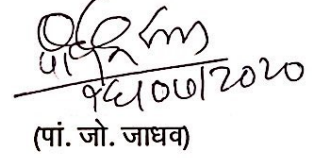 १६/०७/२०२०
(पां. जो. जाधव)